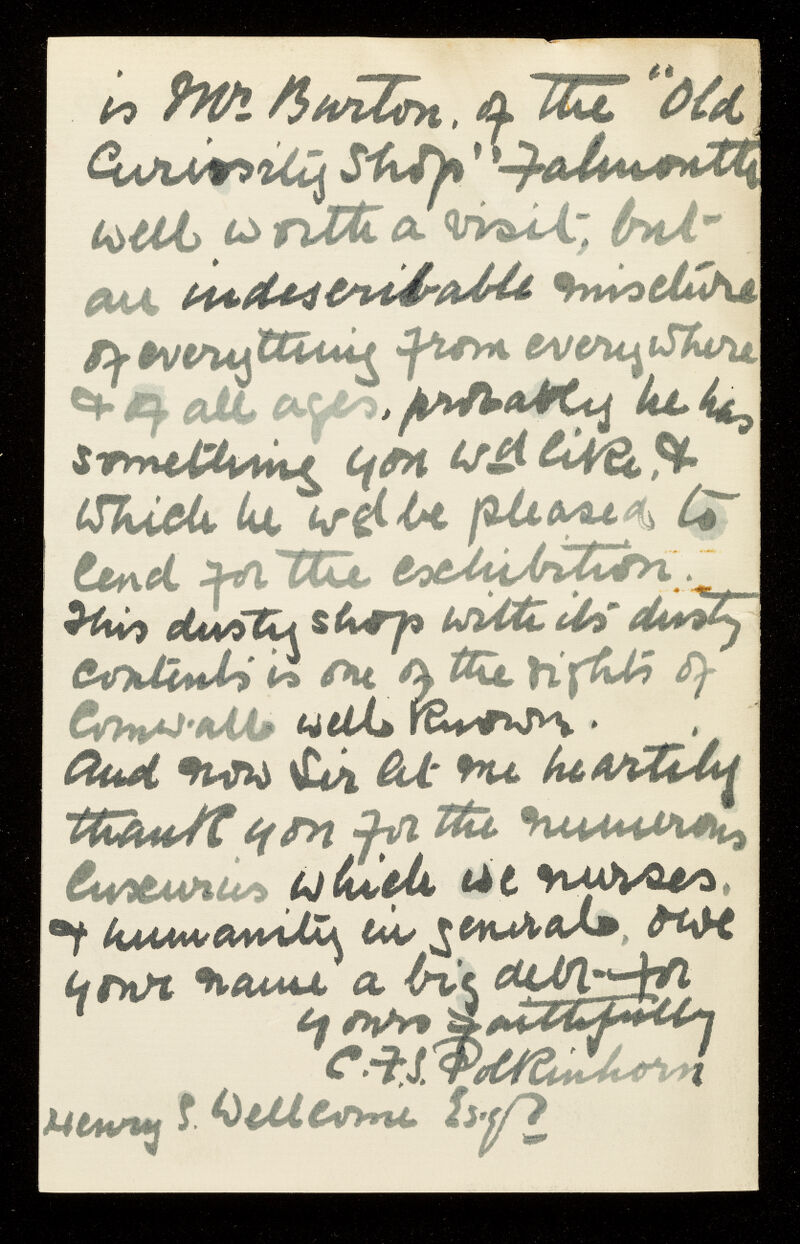 is Mr. Burton, of the "Old
Curiosity Shop" Falmouth
well worth a visit, but
an indescribable mixture
of everything from everywhere
& of all ages, probably he has
something you wd like, &
which he wd be pleased to
lend for the exhibition.
This dusty shop with its dusty
contents is one of the sights of
Cornwall well known.
And now Sir let me heartily
thank you for the numerous
luxuries which we nurses,
& humanity in general, owe
your name a big debt for
yours faithfully
C. F. S. Polkinhorn
Henry S. Wellcome Esqr